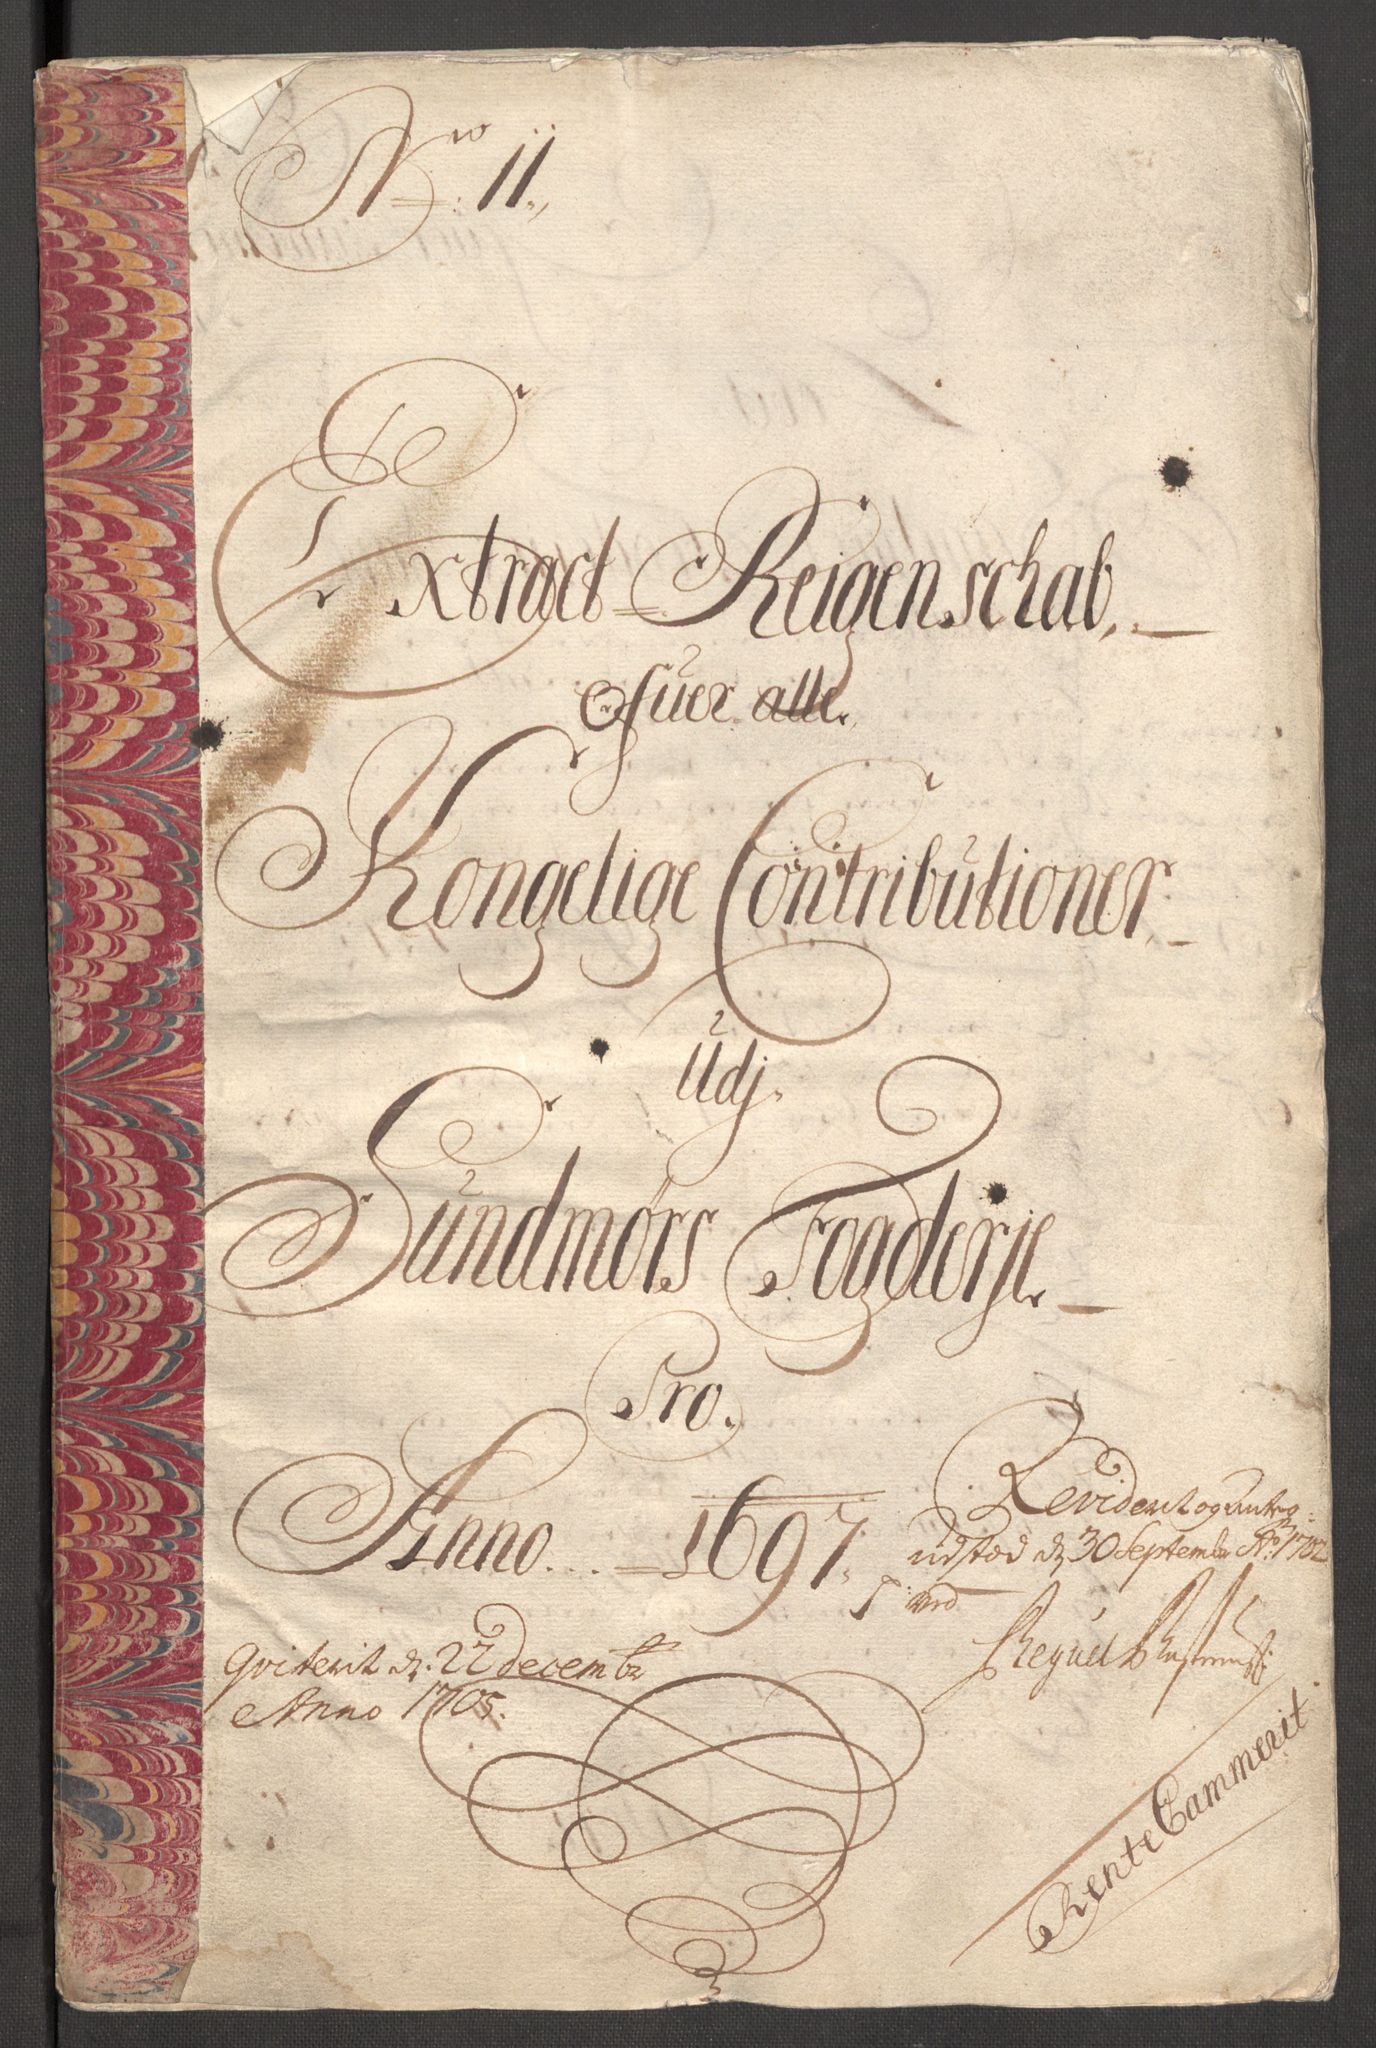 No: 11.
Extract Reigenschab,
ofuer alle
Kongelige Contributioner
Udj
Sundmørs Fogderje
Pro.
Anno 1697.
Revideret og antog:
udstæd d: 30 Septembr Ao: 1702
Qviterit d: 22 decembr
Anno 1705.
RenteCammerit.